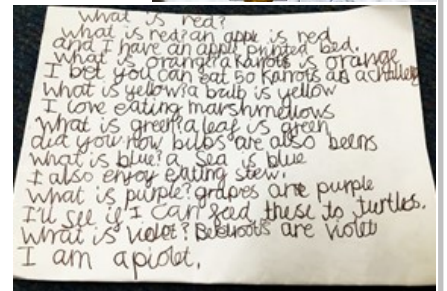 What is red?
What is red? an apple is red
and I have an apple printed bed.
What is orange? a karrots is orange
I bet you can eat 50 karrots as a challeng
What is yellow? a bulb is yellow
I love eating marshmellows
What is green? a leaf is green
did you now bulbs are also beens
what is blue? a sea is blue
I also enjoy eating stew.
What is purple? grapes are purple
I'll see if I can feed these to turtles.
What is violet? Beetroots are violet
I am a piolet.